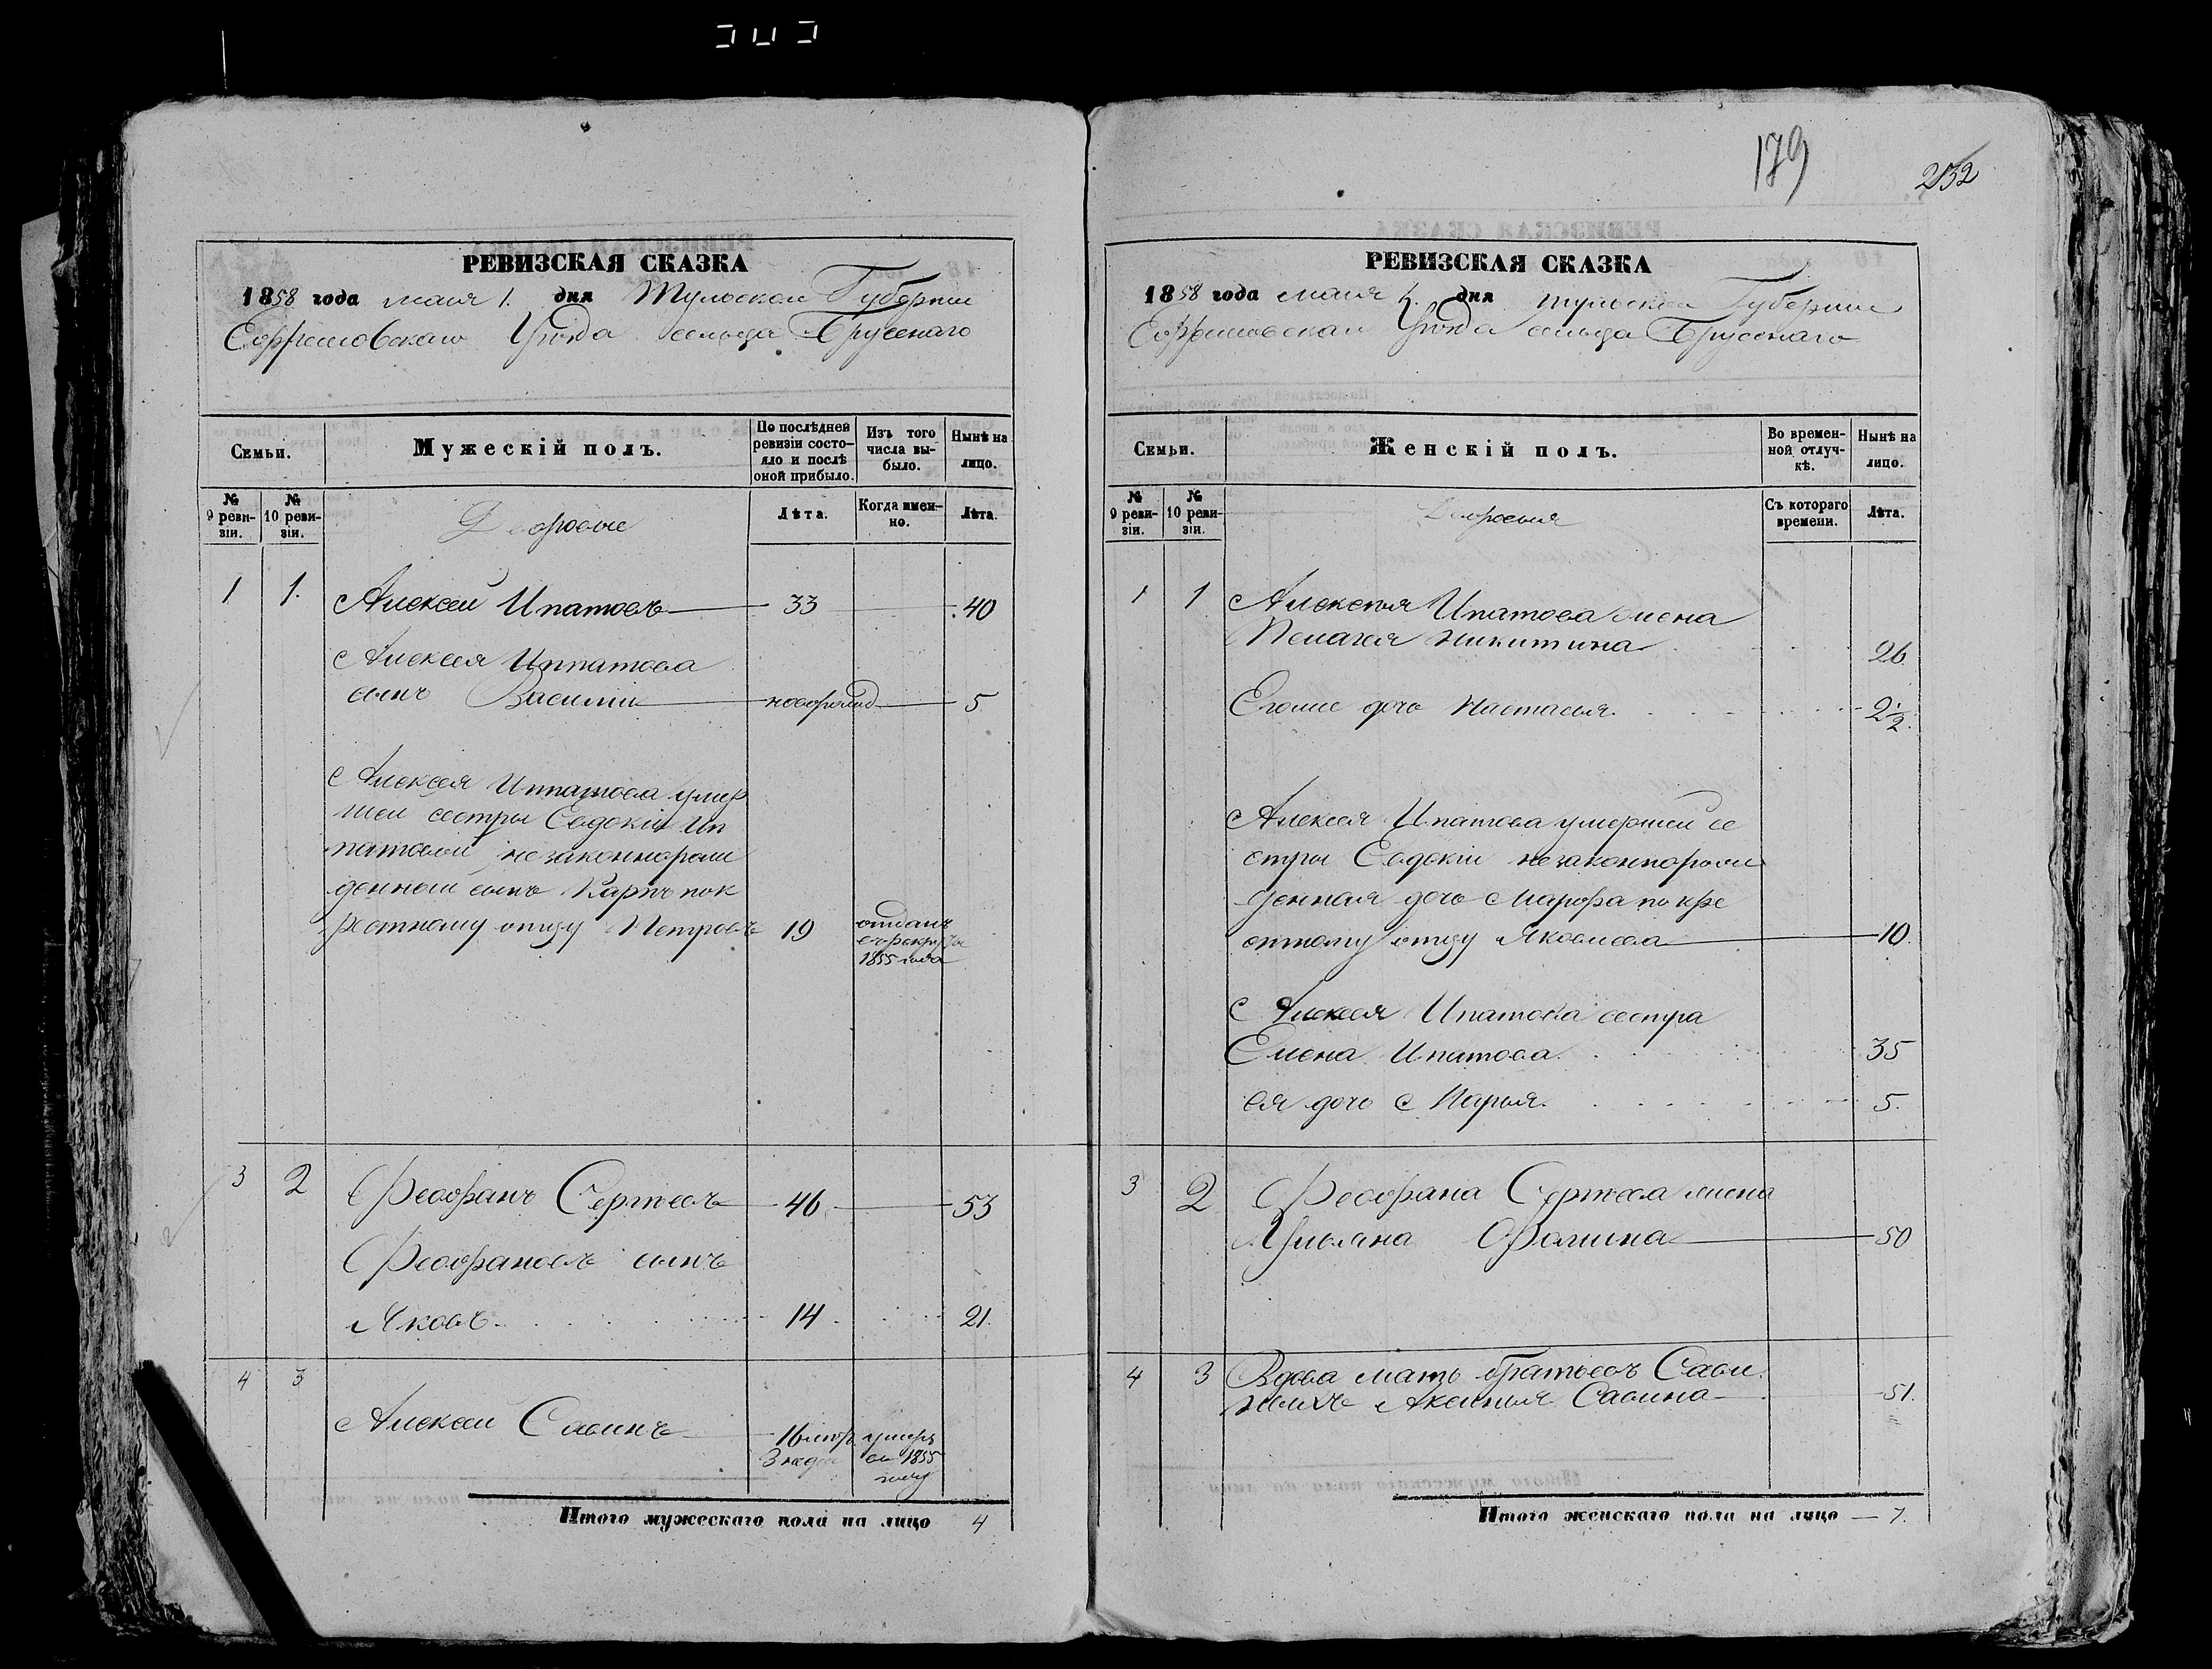 179
252
РЕВИЗСКАЯ СКАЗКА
1858 года мая 1. дня Тульской Губернии
Ефремовскаго Уѣзда сельца Бруснаго
Семьи.
Мужескій полъ.
По послѣдней ревизіи состояло и послѣ оной прибыло.
Изъ того числа выбыло.
Нынѣ на лицо.
№ 9 ревизіи.
№ 10 ревизіи.
Дворовые
Лѣта.
Когда именно.
Лѣта.
1 1. Алексей Ипатовъ 33 40
Алексея Ипатова
сынъ Василий новорожд 5
Алексея Ипатова умер
шей сестры Евдокіи Ип
атовой незаконнорож
денный сынъ Карпъ по к
рестному отцу Петровъ 19 отданъ
в рекруты
1855 года
3 2 Феофанъ Сергеевъ 46 53
Феофановъ сынъ
Яковъ 14 21.
4 3
Алексей Савинъ 16 умеръ
3 нед въ 1855
году
Итого мужескаго пола на лицо 4
РЕВИЗСКАЯ СКАЗКА
1858 года мая 1. дня Тульской Губернии
Ефремовскаго Уѣзда сельца Бруснаго
Семьи.
Женскій полъ.
Во временной отлучкѣ.
Нынѣ на лицо.
№ 9 ревизіи.
№ 10 ревизіи.
Дворовыя
Съ котораго времени.
Лѣта.
1 1 Алексея Ипатова жена
Пелагея Никитина 26.
Егоже дочь Настасья 2½.
Алексея Ипатова умершей се
стры Евдокіи незаконнорож
денная дочь Марфа по кре
стному отцу Яковлева 10.
Алексея Ипатова сестра
Елена Ипатова 35
ея дочь Марья 5.
3 2 Феофана Сергеева жена
Ульяна Фомина 50
4 3 Вдова мать братьевъ Сави
ныхъ Аксинья Савина 51.
Итого женскаго пола на лицо — 7.